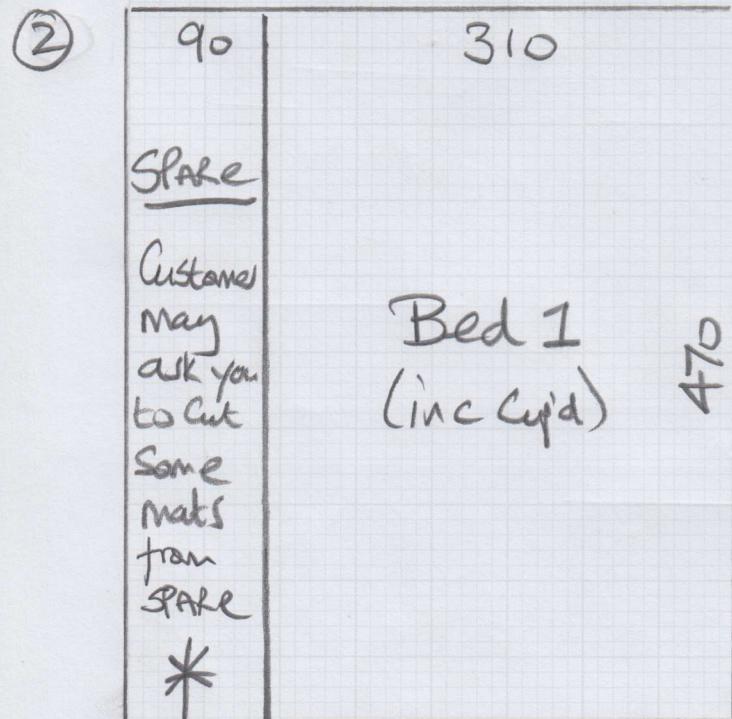 2
90
310
SPARE
Customer
may
ask you
to Cut
Some
mats
from
SPARE
*
Bed 1
(inc Cup'd)
470